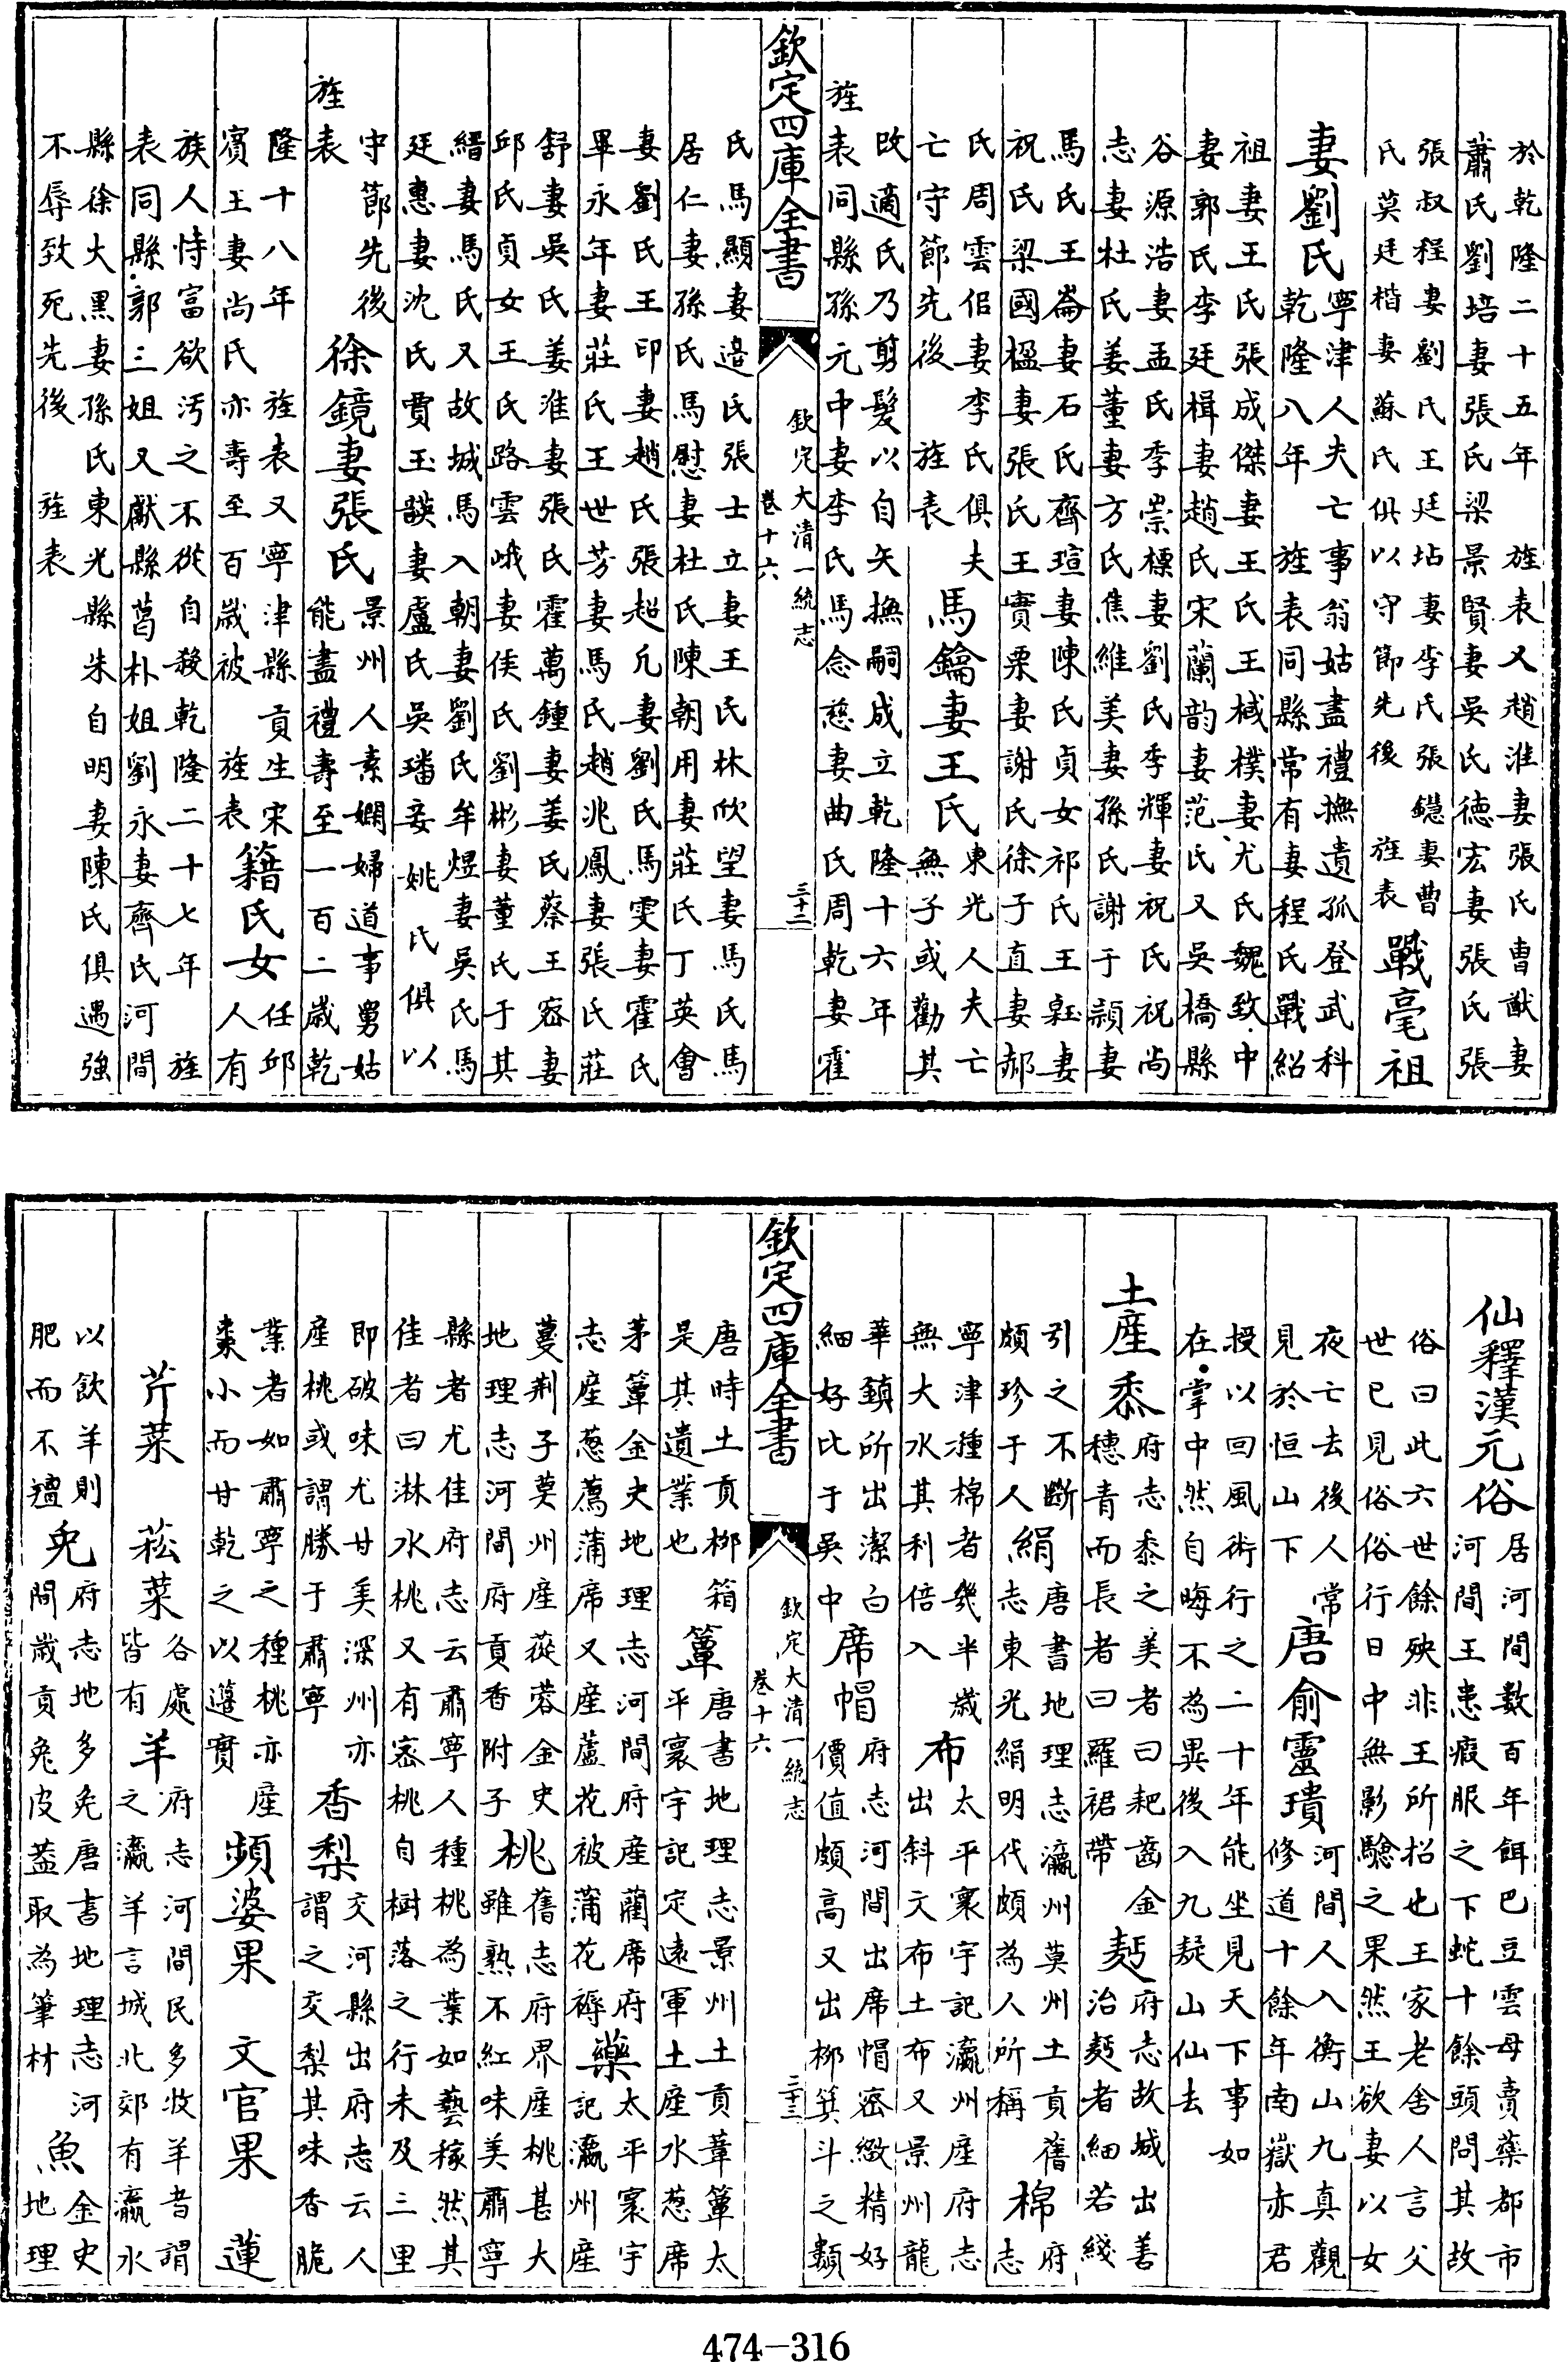 於乾隆二十五年　旌表又趙淮妻張氏曹猷妻
蕭氏劉培妻張氏梁景賢妻吳氏德宏妻張氏張
張叔程妻劉氏王廷坫妻李氏張鐙妻曹
氏莫廷楷妻蘇氏俱以守節先後　旌表
戰毫祖
妻劉氏
寧津人夫亡事翁姑盡禮撫遺孤登武科
乾隆八年　旌表同縣常有妻程氏戰紹
祖妻王氏張成傑妻王氏王棫樸妻尤氏魏致中
妻郭氏李廷楫妻趙氏宋蘭韵妻范氏又吳橋縣
谷源浩妻孟氏李崇標妻劉氏李輝妻祝氏祝尚
志妻杜氏姜董妻方氏焦維美妻孫氏謝于潁妻
馬氏王崙妻石氏齊瑄妻陳氏貞女祁氏王妻
祝氏梁國楹妻張氏王實栗妻謝氏徐子直妻郝
氏周雲佀妻李氏俱夫
亡守節先後　旌表
馬鑰妻王氏
東光人夫亡
無子或勸其
改適氏乃剪髮以自矢撫嗣成立乾隆十六年
旌表同縣孫元中妻李氏馬念慈妻曲氏周乾妻霍
欽定四庫全書
欽定大清一統志
卷十六
三十二
氏馬顯妻邉氏張士立妻王氏林欣望妻馬氏馬
居仁妻孫氏馬慰妻杜氏陳朝用妻莊氏丁英會
妻劉氏王印妻趙氏張超凡妻劉氏馬雯妻霍氏
畢永年妻莊氏王世芳妻馬氏趙兆鳳妻張氏莊
舒妻吳氏姜淮妻張氏霍萬鍾妻姜氏蔡王宻妻
邱氏貞女王氏路雲峨妻侯氏劉彬妻董氏于其
縉妻馬氏又故城馬入朝妻劉氏牟煜妻吳氏馬
廷惠妻沈氏賈玉韺妻盧氏吳璠妾姚氏俱以
守節先後
旌表
徐鏡妻張氏
景州人素嫻婦道事舅姑
能盡禮壽至一百二歲乾
隆十八年　旌表又寧津縣貢生宋
濱王妻尚氏亦壽至百歲被　旌表
籍氏女
任邱
人有
族人恃富欲汚之不從自殺乾隆二十七年　旌
表同縣郭三姐又獻縣葛朴姐劉永妻齊氏河間
縣徐大黑妻孫氏東光縣朱自明妻陳氏俱遇強
不辱致死先後　旌表
仙釋漢元俗
居河間數百年餌巴豆雲母賣藥都市
河間王患瘕服之下蛇十餘頭問其故
俗曰此六世餘殃非王所招也王家老舍人言父
世已見俗俗行日中無影驗之果然王欲妻以女
夜亡去後人常
見於恒山下
唐俞靈璝
河間人入衡山九真觀
修道十餘年南嶽赤君
授以回風術行之二十年能坐見天下事如
在掌中然自晦不為異後入九疑山仙去
土產黍
府志黍之美者曰耙齒金
穗青而長者曰羅裙帶
麪
府志故城出善
治麪者細若綫
引之不斷
頗珍于人
絹
唐書地理志瀛州莫州土貢舊
志東光絹明代頗為人所稱
棉
府
志
寧津種棉者幾半歲
無大水其利倍入
布
太平寰宇記瀛州產府志
出斜文布土布又景州龍
華鎮所出潔白
細好比于吳中
席帽
府志河間出席帽宻緻精好
價值頗高又出栁箕斗之類
欽定四庫全書
欽定大清一統志
卷十六
三十三
唐時土貢栁箱
是其遺業也
簟
唐書地理志景州土貢葦簟太
平寰宇記定遠軍土產水葱席
茅簟金史地理志河間府產藺席府
志產葱蒍蒲席又產蘆花被蒲花褥
藥
太平寰宇
記瀛州產
蔓荆子莫州產蓯蓉金史
地理志河間府貢香附子
桃
舊志府界產桃甚大
雖熟不紅味美肅寧
縣者尤佳府志云肅寧人種桃為業如藝稼然其
佳者曰淋水桃又有宻桃自樹落之行未及三里
即破味尤甘美深州亦
產桃或謂勝于肅寧
香梨
交河縣出府志云人
謂之交梨其味香脆
業者如肅寧之種桃亦產
棗小而甘乾之以籩實
頻婆果　文官果　蓮
芹菜　菘菜
各處
皆有
羊
府志河間民多牧羊者謂
之瀛羊言城北郊有瀛水
以飲羊則
肥而不羶
兎
府志地多兔唐書地理志河
間歲貢兔皮葢取為筆材
魚
金史
地理
474-316